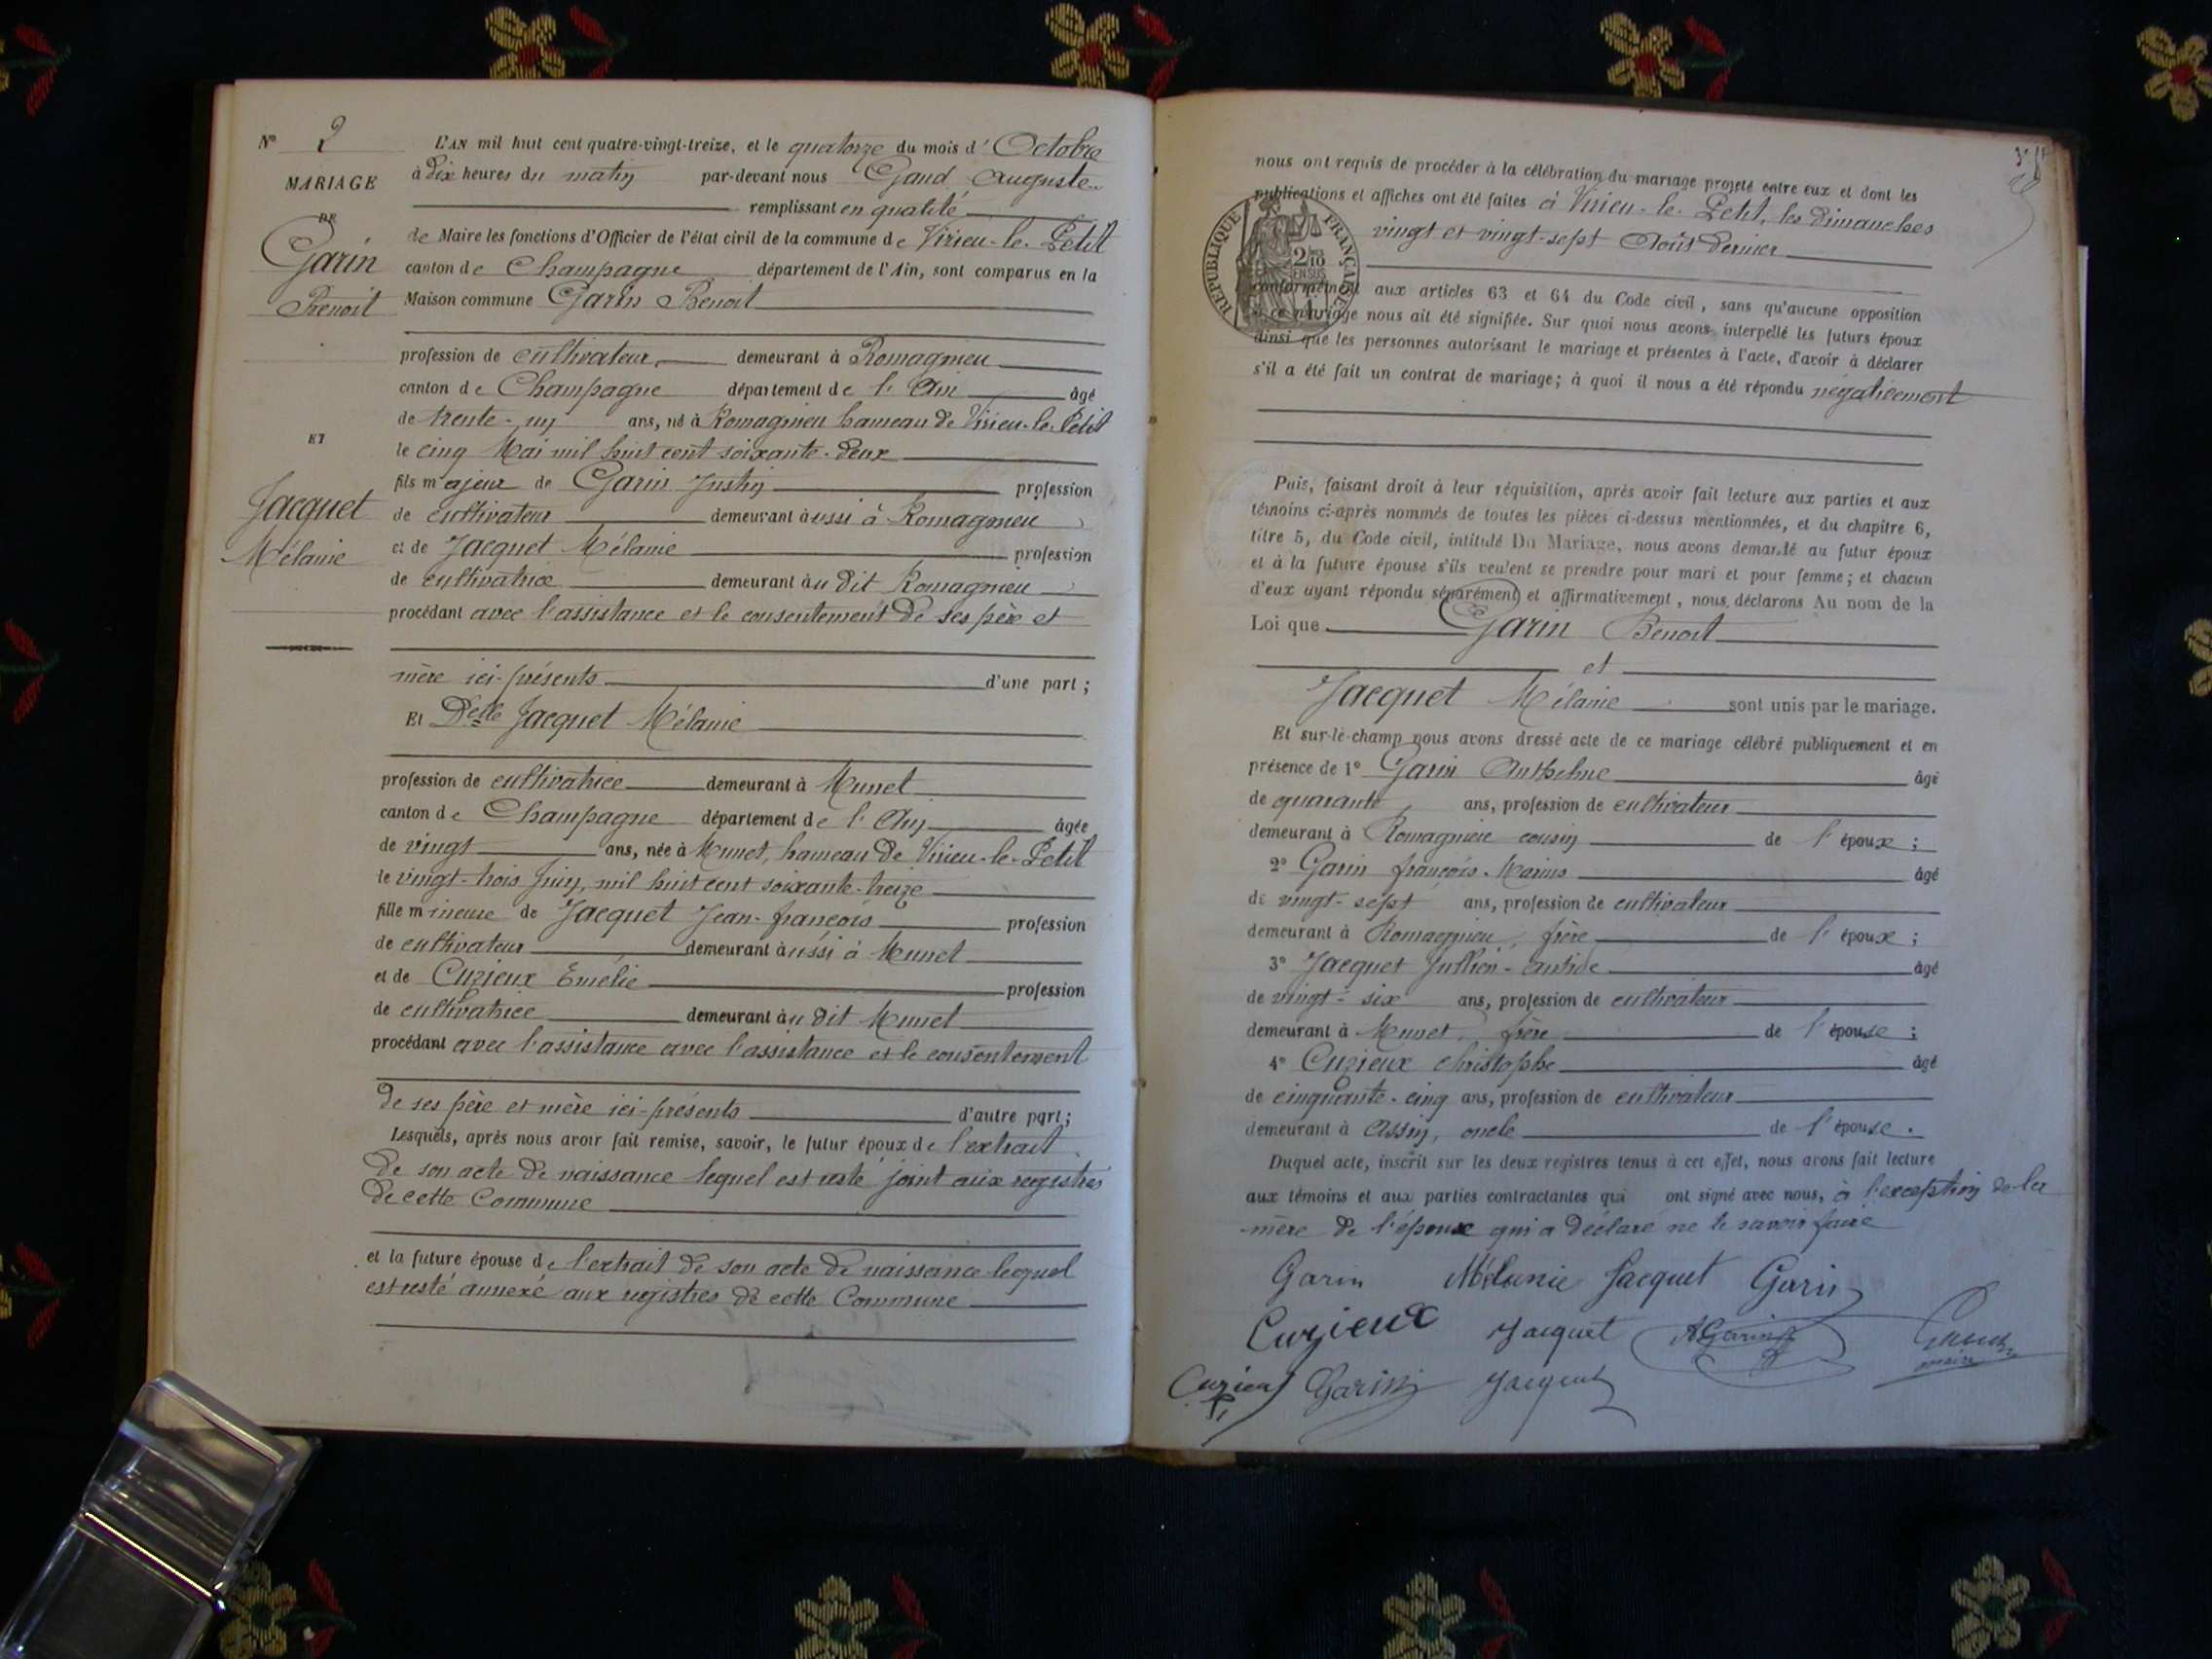 N° 2
MARIAGE
DE
Garin
Benoit
ET
Jacquet
Mélanie
L'AN mil huit cent quatre-vingt-treize, et le quatorze du mois d' Octobre
à dix heures du matin par-devant nous Gand Auguste
remplissant en qualité
de Maire les fonctions d'Officier de l'état civil de la commune de Virieu-le-Petit
canton de Champagne département de l'Ain, sont comparus en la
Maison commune Garin Benoit
profession de cultivateur demeurant à Romagnieu
canton de Champagne département de l'Ain âgé
de trente-un ans, né à Romagnieu hameau de Virieu-le-Petit
le cinq Mai mil huit cent soixante-deux
fils majeur de Garin Justin profession
de cultivateur demeurant aussi à Romagnieu
et de Jacquet Mélanie profession
de cultivatrice demeurant au dit Romagnieu
procédant avec l'assistance et le consentement de ses père et
mère ici-présents d'une part ;
Et Delle Jacquet Mélanie
profession de cultivatrice demeurant à Munet
canton de Champagne département de l'Ain âgée
de vingt ans, née à Munet, hameau de Virieu-le-Petit
le vingt-trois Juin, mil huit cent soixante-treize
fille mineure de Jacquet Jean-françois profession
de cultivateur demeurant aussi à Munet
et de Cuzieux Emélie profession
de cultivatrice demeurant au dit Munet
procédant avec l'assistance avec l'assistance et le consentement
de ses père et mère ici-présents d'autre part ;
Lesquels, après nous avoir fait remise, savoir, le futur époux de l'extrait
de son acte de naissance lequel est resté joint aux registres
de cette Commune
et la future épouse de l'extrait de son acte de naissance lequel
est resté annexé aux registres de cette Commune
nous ont requis de procéder à la célébration du mariage projeté entre eux et dont les
publications et affiches ont été faites à Virieu-le-Petit, les dimanches
vingt et vingt-sept Août dernier
RÉPUBLIQUE FRANÇAISE
2/10
EN SUS
conformément aux articles 63 et 64 du Code civil, sans qu'aucune opposition
à ce mariage nous ait été signifiée. Sur quoi nous avons interpellé les futurs époux
ainsi que les personnes autorisant le mariage et présentes à l'acte, d'avoir à déclarer
s'il a été fait un contrat de mariage ; à quoi il nous a été répondu négativement
Puis, faisant droit à leur réquisition, après avoir fait lecture aux parties et aux
témoins ci-après nommés de toutes les pièces ci-dessus mentionnées, et du chapitre 6,
titre 5, du Code civil, intitulé Du Mariage, nous avons demandé au futur époux
et à la future épouse s'ils veulent se prendre pour mari et pour femme ; et chacun
d'eux ayant répondu séparément et affirmativement, nous déclarons Au nom de la
Loi que Garin Benoit
et
Jacquet Mélanie sont unis par le mariage.
Et sur-le-champ nous avons dressé acte de ce mariage célébré publiquement et en
présence de 1° Garin Anthelme âgé
de quarante ans, profession de cultivateur
demeurant à Romagnieu cousin de l'époux ;
2° Garin françois-Marius âgé
de vingt-sept ans, profession de cultivateur
demeurant à Romagnieu, frère de l'époux ;
3° Jacquet Jullien-antide âgé
de vingt-six ans, profession de cultivateur
demeurant à Munet, frère de l'épouse ;
4° Cuzieux Christophe âgé
de cinquante-cinq ans, profession de cultivateur
demeurant à Assin, oncle de l'épouse.
Duquel acte, inscrit sur les deux registres tenus à cet effet, nous avons fait lecture
aux témoins et aux parties contractantes qui ont signé avec nous, à l'exception de la
mère de l'époux qui a déclaré ne le savoir faire
Garin Mélanie Jacquet Garin
Cuzieux Jacquet A Garin
maire
Cuzieux Garin Jacquet